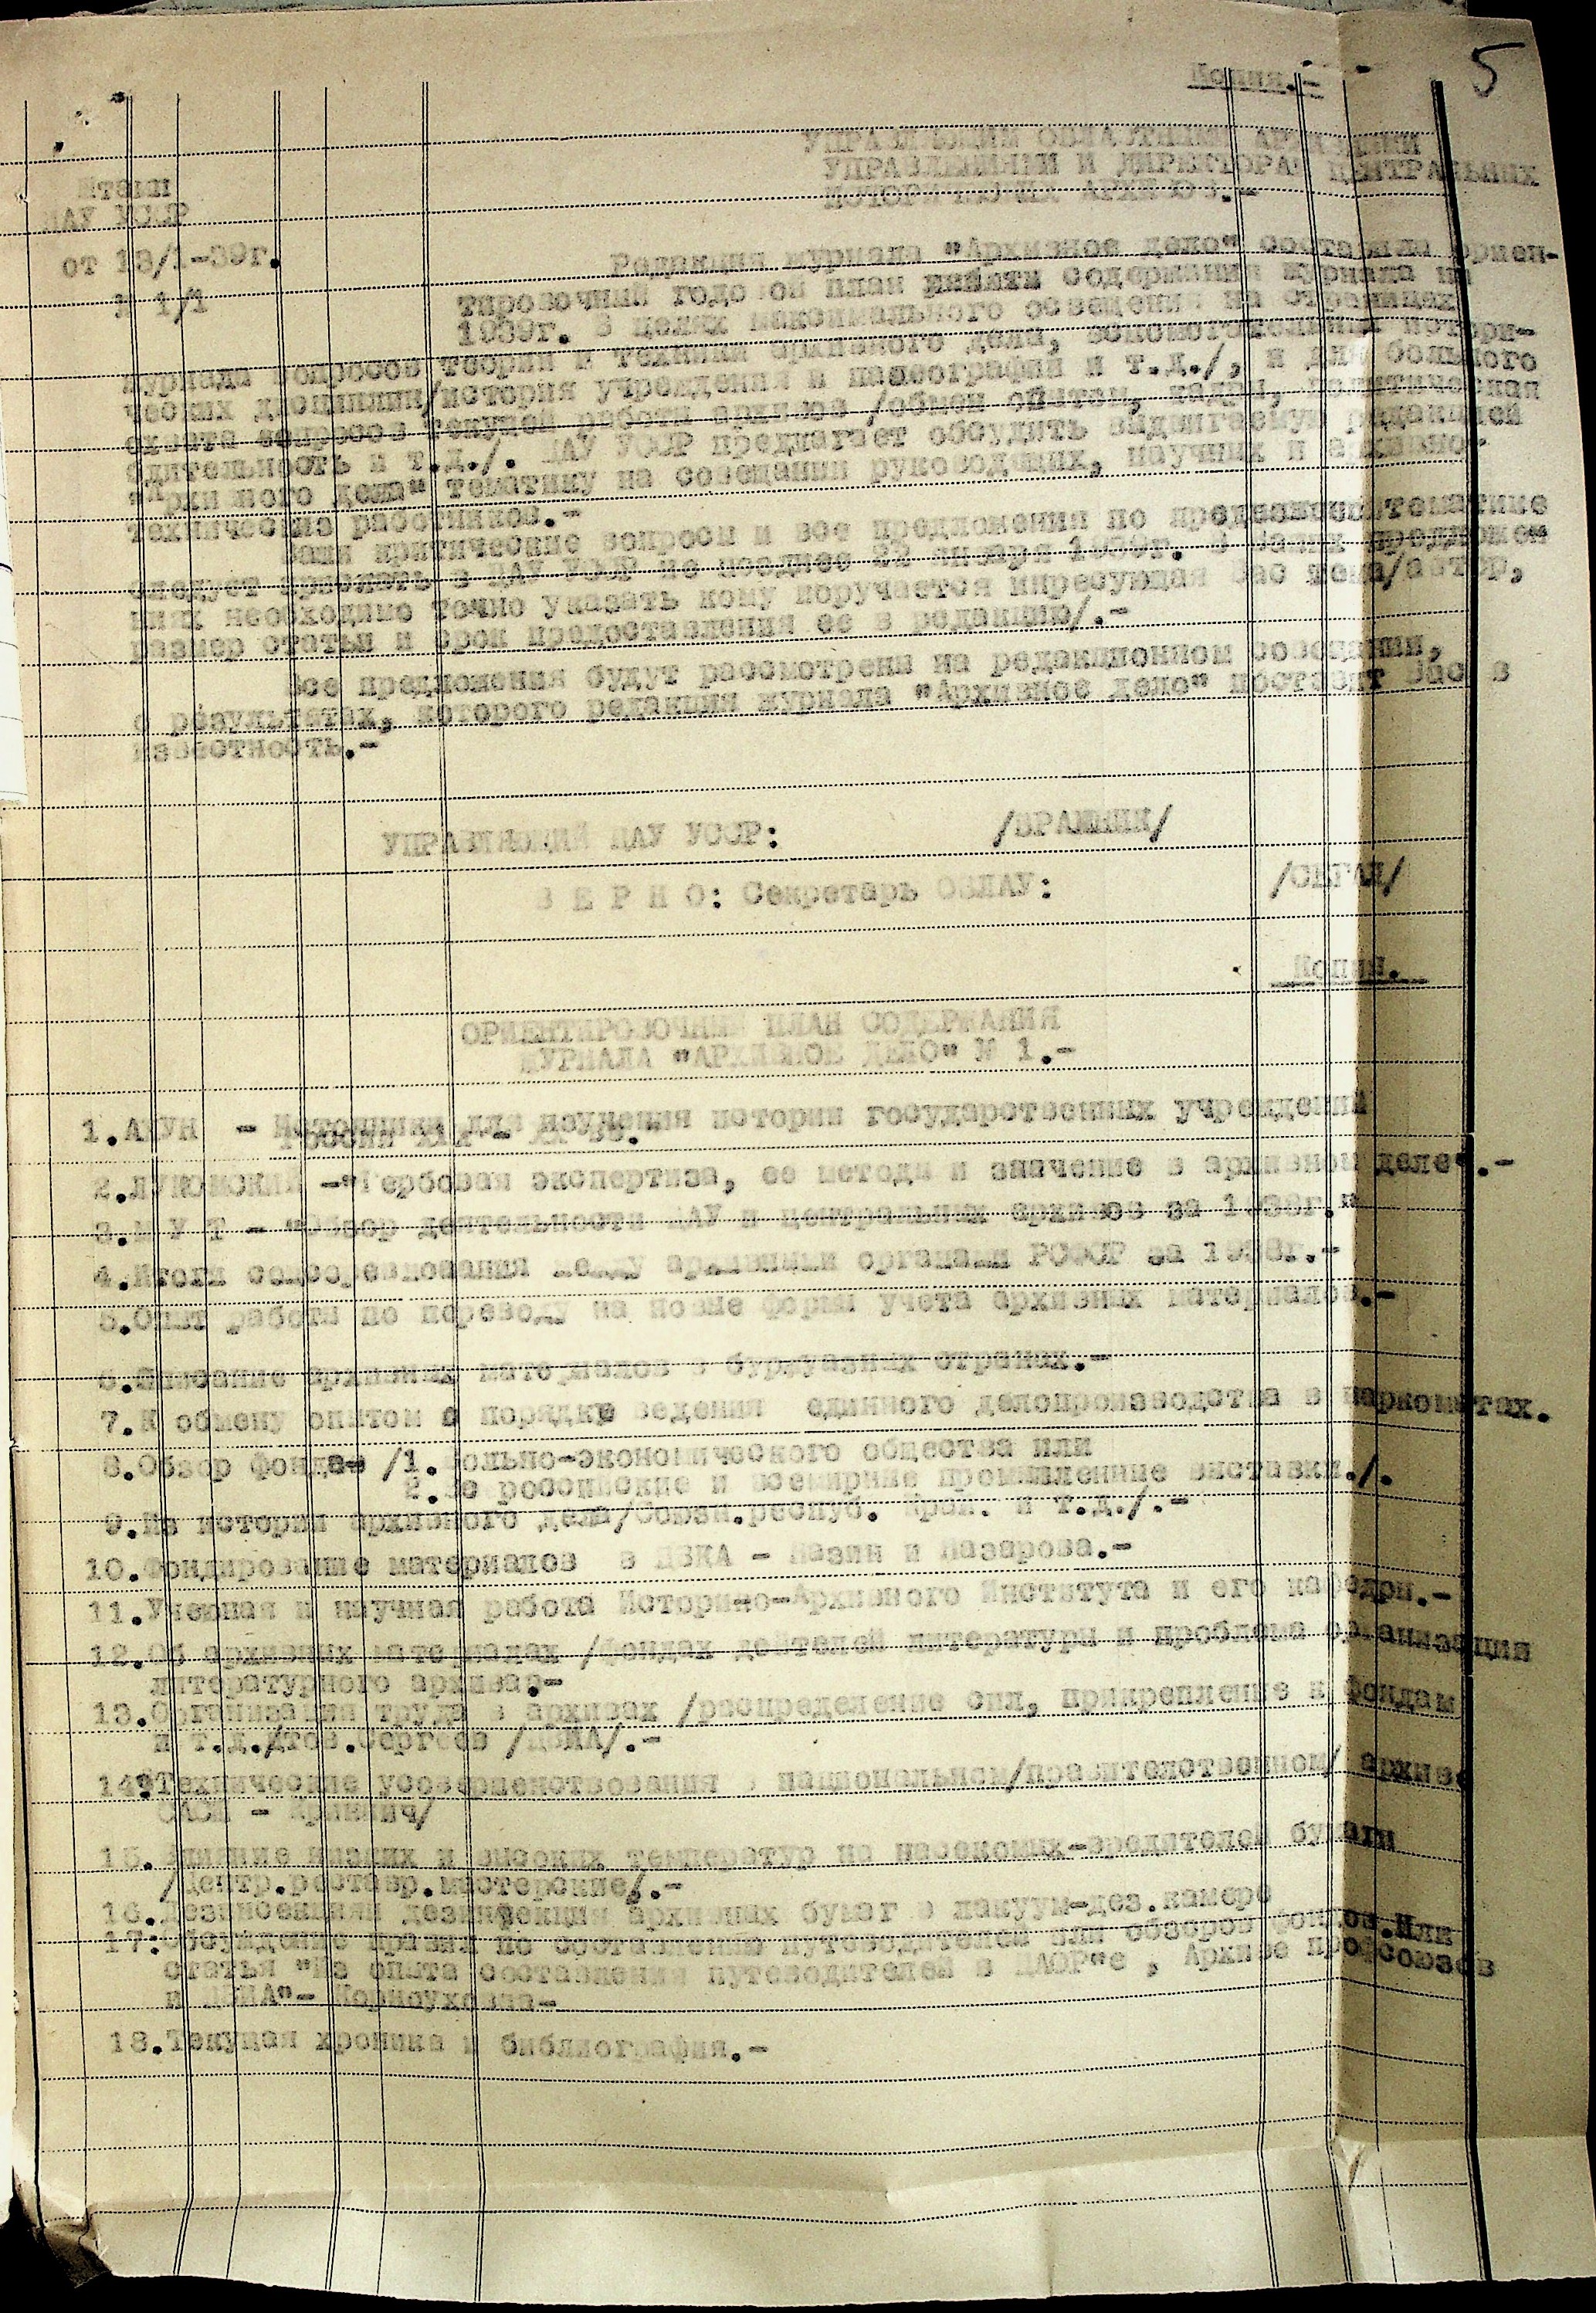 5
Копия.-
УПРАВЛЯЮЩИМ ОБЛАСТНЫМИ АРХИВНЫМИ
УПРАВЛЕНИЯМИ И ДИРЕКТОРАМ ЦЕНТРАЛЬНЫХ
ИСТОРИЧЕСКИХ АРХИВОВ.-
Штамп
ЦАУ УССР
от 13/1-39г.
№ 1/1
Редакция журнала "Архивное дело" составила ориен-
тировочный годовой план содержания журнала на
1939г. В целях максимального освещения на страницах
журнала вопросов теории и техники архивного дела, вспомогательных истори-
ческих дисциплин/история учреждения и палеография и т.д./, и для большого
охвата вопросов текущей работы архивов /обмен опытом, кадры, политическая
бдительность и т.д./. ЦАУ УССР предлагает обсудить выдвигаемую редакцией
"Архивного дела" тематику на совещании руководящих, научных и архивно-
технических работников.-
Ваши критические вопросы и все предложения по тематике
следует прислать в ЦАУ УССР не позднее 22 января 1939г. В Ваших предложе
ниях необходимо точно указать кому поручается интересующая Вас тема/автор,
размер статьи и срок предоставления ее в редакцию/.-
Все предложения будут рассмотрены на редакционном совещании,
о результатах, которого редакция журнала "Архивное дело" поставит Вас в
известность.-
УПРАВЛЯЮЩИЙ ЦАУ УССР: /БРАЖНИК/
В Е Р Н О: Секретарь ОБЛАУ: /СЕГАЛ/
Копия.
ОРИЕНТИРОВОЧНЫЙ ПЛАН СОДЕРЖАНИЯ
ЖУРНАЛА "АРХИВНОЕ ДЕЛО" № 1.-
1.АХУН - Источники для изучения истории государственных учреждений
России
2.ЛУКОМСКИЙ -"Гербовая экспертиза, ее методы и значение в архивном деле".-
3. - "Обзор деятельности ЦАУ и центральных архивов за 1938г."
4.Итоги соцсоревнования между архивными органами РСФСР за 1938г.-
5.Опыт работы по переводу на новые формы учета архивных материалов.-
6.Описание архивных материалов в буржуазных странах.-
7.К обмену опытом о порядке ведения единного делопроизводства в наркоматах.
8.Обзор фондов /1.Вольно-экономического общества или
2.Все российские и всемирные промышленные выставки./.
9.Из истории архивного дела/Союзн.респуб. Арол. и т.д./.-
10.Фондирование материалов в ЦВИА - Мазин и Назарова.-
11.Учебная и научная работа Историко-Архивного Института и его кафедры.-
12.Об архивных материалах /фондах деятелей литературы и проблема организации
литературного архива.-
13.Организация труда в архивах /распределение сил, прикрепление к фондам
и т.д./тов.Сергеев /ЦВИА/.-
14.Технические усовершенствования в национальном/правительственном/ архиве
САСШ -
15.Влияние низких и высоких температур на насекомых-вредителей бумаги
/Центр.реставр.мастерские/.-
16. дезинфекция архивных бумаг в вакуум-дез.камере
17.Обсуждение правил по составлению путеводителей или обзоров фондов.Или
статья "Из опыта составления путеводителей в ЦАОР"е , Архиве профсоюзов
и ЦВИА"- Корноухова-
18.Текущая хроника и библиография.-